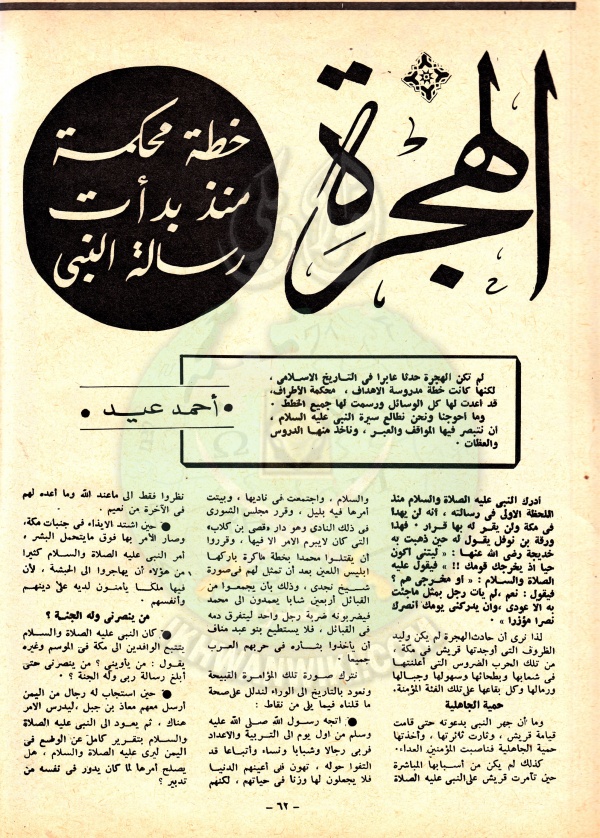 الهجرة
خطة محكمة
منذ بدأت
رسالة النبى
لم تكن الهجرة حدثا عابرا فى التاريخ الاسلامى ،
لكنها كانت خطة مدروسة الاهداف ، محكمة الأطراف،
قد أعدت لها كل الوسائل ورسمت لها جميع الخطط ٠
وما أحوجنا ونحن نطالع سيرة النبى عليه السلام ،
أن نتبصر فيها المواقف والعبر ، ونأخذ منها الدروس
والعظات ٠
• أحمد عيد •
أدرك النبى عليه الصلاة والسلام منذ
اللحظة الأولى فى رسالته ، أنه لن يهدأ
فى مكة ولن يقر له بها قرار ٠ فهذا
ورقة بن نوفل يقول له حين ذهبت به
خديجة رضى الله عنها : « ليتنى أكون
حيا إذ يخرجك قومك !! » فيقول عليه
الصلاة والسلام : « أو مخرجى هم ؟
فيقول : نعم ،لم يات رجل بمثل ماجئت
به الا عودى ،وان يدركنى يومك أنصرك
نصرا مؤزرا » ٠
لذا نرى أن حادث الهجرة لم يكن وليد
الظروف التى أوجدتها قريش فى مكة ،
من تلك الحرب الضروس التى أعلنتها
فى شعابها وبطحائها وسهولها وجبالها
ورمالها وكل بقاعها على تلك الفئة المؤمنة.
حمية الجاهلية
وما أن جهر النبى بدعوته حتى قامت
قيامة قريش ، وثارت ثائرتها ، وأخذتها
حمية الجاهلية فناصبت المؤمنين العداء.
كذلك لم يكن من أسبابها المباشرة
حين تآمرت قريش على النبى عليه الصلاة
والسلام ، واجتمعت فى ناديها ، وبيتت
أمرها فيه بليل ، وقرر مجلس الشورى
فى ذلك النادى وهو دار «قصى بن كلاب»
التى كان لايبرم الامر الا فيها ، وقرروا
أن يقتلوا محمدا بخطة ماكرة باركها
ابليس اللعين بعد أن تمثل لهم فى صورة
شيخ نجدى ، وذلك بأن يجمعوا من
القبائل أربعين شابا يعمدون الى محمد
فيضربونه ضربة رجل واحد ليتفرق دمه
فى القبائل ، فلا يستطيع بنو عبد مناف
أن يأخذوا بثأره فى حربهم العرب
جميعا ٠
نترك صورة تلك المؤامرة القبيحة
ونعود بالتاريخ الى الوراء لندلل على صحة
ما قلناه فيما يلى من نقاط :
● اتجه رسول الله صلى الله عليه
وسلم من أول يوم الى التربية والاعداد
فربى رجالا وشبابا ونساء وأتباعا قد
التفوا حوله ، تهون فى أعينهم الدنيا
فلا يجعلون لها وزنا فى حياتهم ، لكنهم
نظروا فقط الى ماعند الله وما أعده لهم
فى الآخرة من نعيم ٠
● حين اشتد الايذاء فى جنبات مكة،
وصار الأمر بها فوق مايتحمل البشر ،
أمر النبى عليه الصلاة والسلام كثيرا
من هؤلاء أن يهاجروا الى الحبشة ، لأن
فيها ملكا يأمنون لديه على دينهم
وأنفسهم ٠
من ينصرنى وله الجنة ؟
● كان النبى عليه الصلاة والسلام
يتتبع الوافدين الى مكة فى الموسم وغيره
يقول : من ياوينى ؟ من ينصرنى حتى
أبلغ رسالة ربى وله الجنة ؟ ٠
● حين استجاب له رجال من اليمن
أرسل معهم معاذ بن جبل ،ليدرس الامر
هناك ، ثم يعود الى النبى عليه الصلاة
والسلام بتقرير كامل عن الوضع فى
اليمن ليرى عليه الصلاة والسلام ، هل
يصلح أمرها لما كان يدور فى نفسه من
تدبير ؟
- ٦٢ -